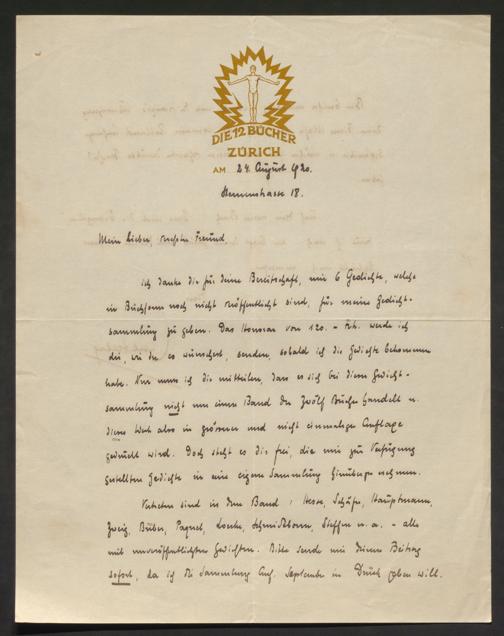 DIE 12 BÜCHER
ZÜRICH
AM 24. August 1920.
Sternenstrasse 18.
Mein lieber, Freund,
Ich danke dir für deine Bereitschaft, mir 6 Gedichte, welche
in Buchform noch nicht veröffentlicht sind, für meine Gedicht-
sammlung zu geben. Das Honorar von 120.- Mk. werde ich
dir, wie du es wünschest, senden, sobald ich die Gedichte bekommen
habe. Nur muss ich dir mitteilen, dass es sich bei dieser Gedicht-
sammlung nicht um einen Band der Zwölf Bücher handelt u.
dieses Werk also in grösserer und nicht einmaliger Auflage
gedruckt wird. Doch steht es dir frei, die mir zur Verfügung
gestellten Gedichte in eine eigene Sammlung hinüberzunehmen.
Vertreten sind in dem Band: Hesse, Schäfer, Hauptmann,
Zweig, Buber, Paquet, Loerke, Schmidtbonn, Steffen u. a. - alle
mit unveröffentlichten Gedichten. Bitte sende mir deinen Beitrag
sofort, da ich die Sammlung Anf. September in Druck geben will.